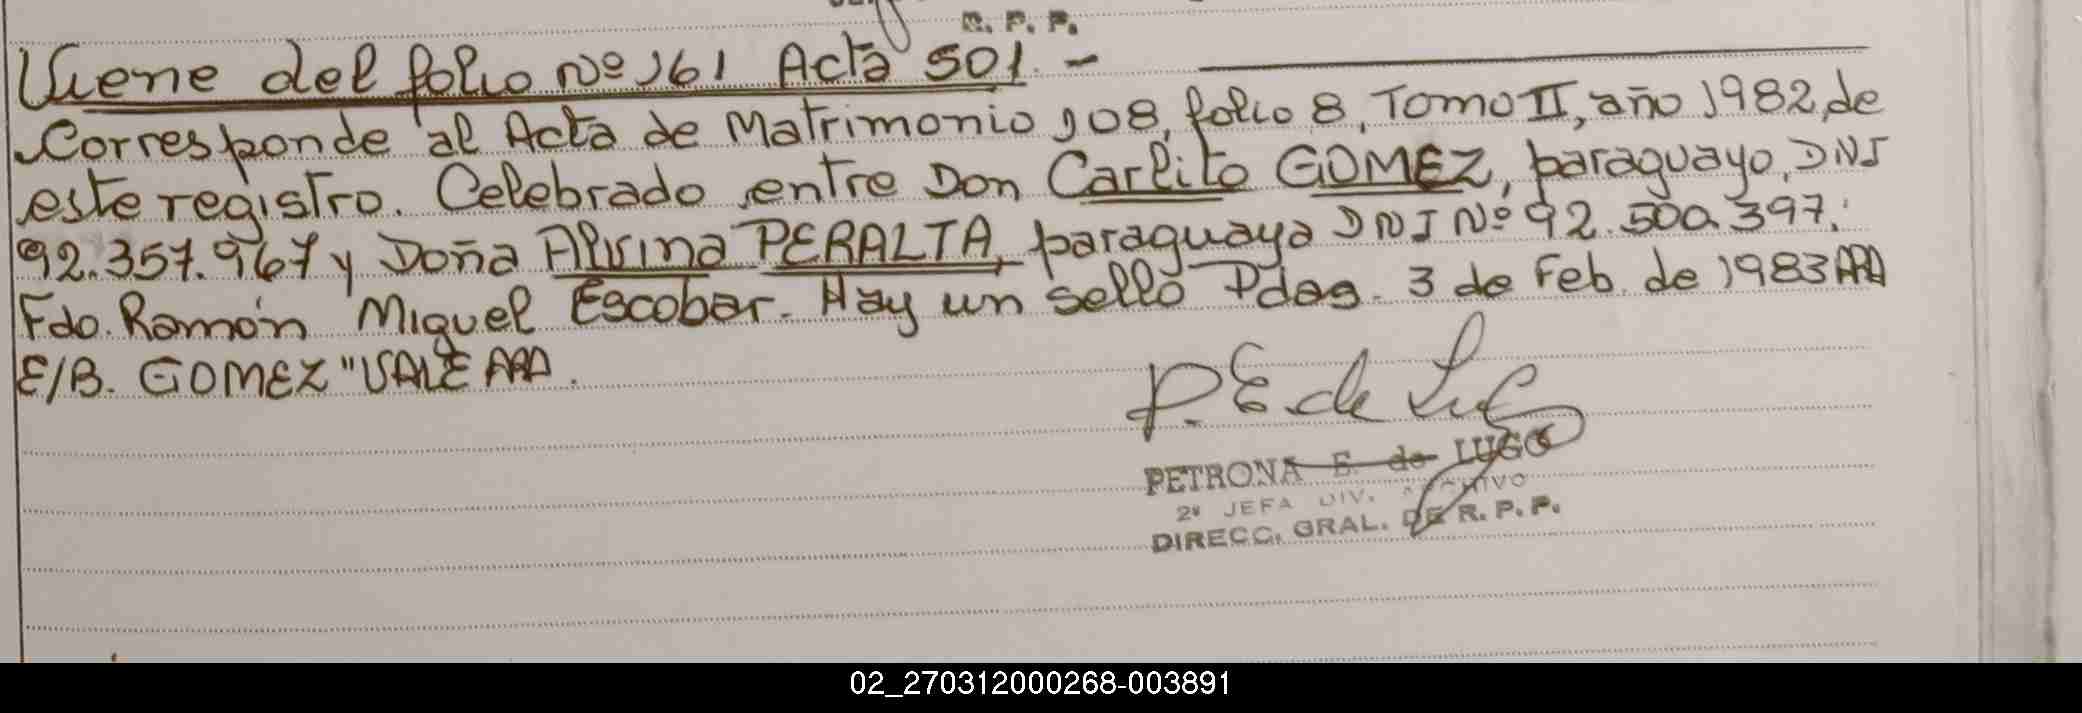 R. P. P.
Viene del folio Nº 161 Acta 501. -
Corresponde al Acta de Matrimonio 108, folio 8, Tomo II, año 1982, de
este registro. Celebrado entre Don Carlito GOMEZ, paraguayo, DNI
92.357.967 y Doña Alvina PERALTA, paraguaya DNI Nº 92.500.397.
Fdo. Ramón Miguel Escobar. Hay un sello Pdas. 3 de Feb. de 1983
E/B. GOMEZ "VALE
P. E de Lugo
PETRONA E. de LUGO
2ª JEFA DIV. ARCHIVO
DIRECC. GRAL. DE R. P. P.
02_270312000268-003891